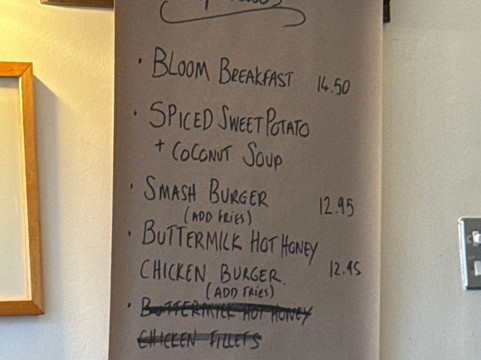 • BLOOM BREAKFAST 14.50
• SPICED SWEET POTATO
+ COCONUT SOUP
• SMASH BURGER 12.95
(ADD FRIES)
• BUTTERMILK HOT HONEY
CHICKEN BURGER. 12.95
(ADD FRIES)
• BUTTERMILK HOT HONEY
CHICKEN FILLETS